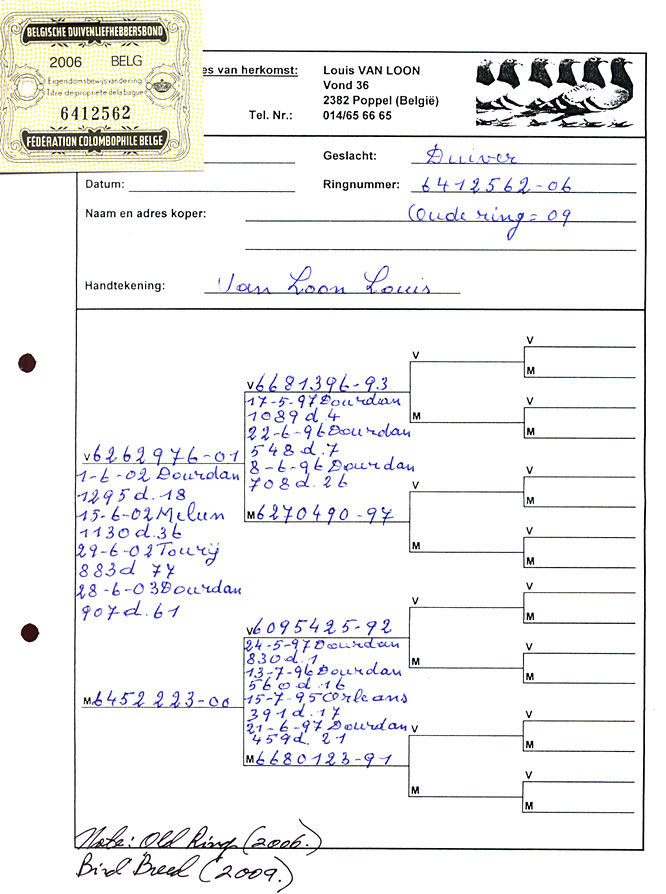 BELGISCHE DUIVENLIEFHEBBERSBOND
2006 BELG
Eigendomsbewijs van de ring
Titre de propriété de la bague
6412562
FÉDÉRATION COLOMBOPHILE BELGE
es van herkomst:
Louis VAN LOON
Vond 36
2382 Poppel (België)
Tel. Nr.: 014/65 66 65
Geslacht: Duiver
Datum:
Ringnummer: 6412562-06
Naam en adres koper: Oude ring = 09
Handtekening: Van Loon Louis
V 6262976-01
1-6-02 Dourdan
1295 d. 18
15-6-02 Melun
1130 d. 36
29-6-02 Toury
883 d 77
28-6-03 Dourdan
907 d. 61
M 6452223-00
V 6681396-93
17-5-97 Dourdan
1089 d. 4
22-6-96 Dourdan
548 d. 7
8-6-96 Dourdan
708 d. 26
M 6270490-97
V 6095425-92
24-5-97 Dourdan
830 d. 1
13-7-96 Dourdan
560 d. 16
15-7-95 Orleans
391 d. 17
21-6-97 Dourdan
459 d. 21
M 6680123-91
V
M
V
M
V
M
V
M
V
M
V
M
V
M
V
M
V
M
V
M
V
M
V
M
Note: Old Ring (2006.)
Bird Breed (2009.)